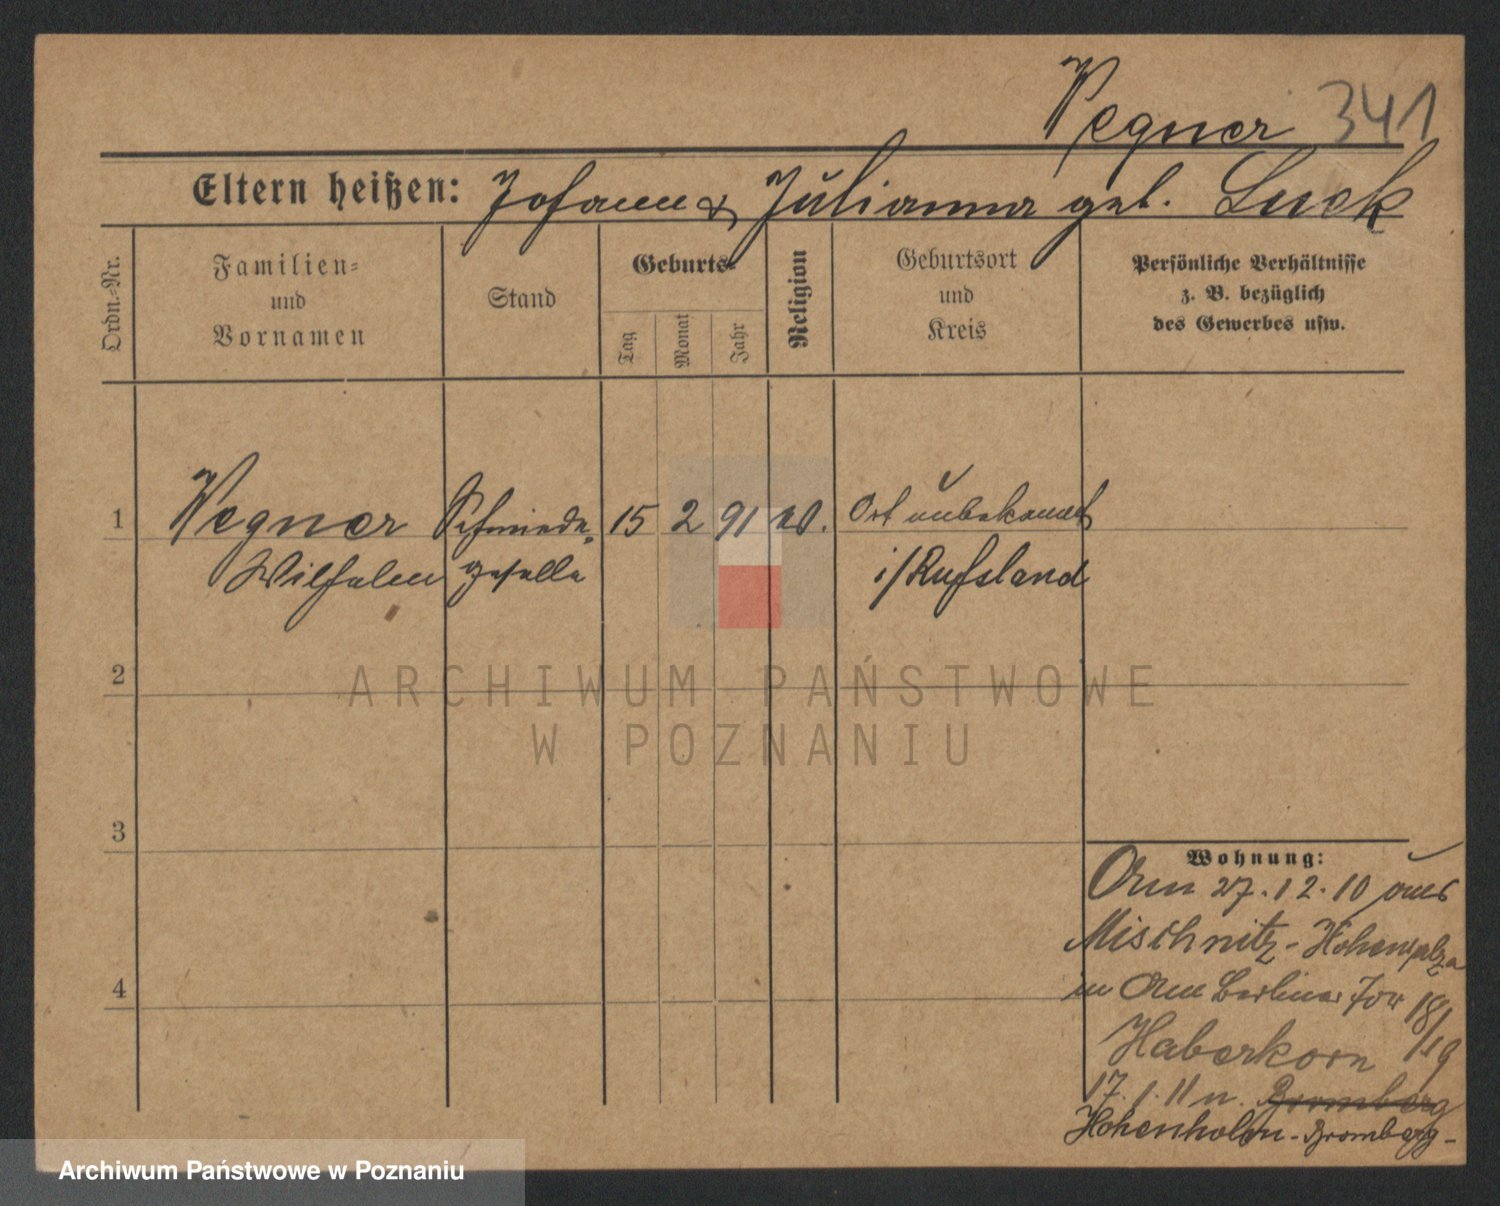 Wegner 341
Eltern heißen: Johann & Julianna geb. Luck
Ordn.-Nr.
Familien-
und
Vornamen
Stand
Geburts-
Tag
Monat
Jahr
Religion
Geburtsort
und
Kreis
Persönliche Verhältnisse
z. B. bezüglich
des Gewerbes usw.
1 Wegner Schmiede- 15 2 91 ev. Ort unbekannt
Wilhelm geselle i/Rußland
2
3
4
Wohnung:
Am 27.12.10 aus
Mischnitz-Hohensalza
in Berliner Tor 18/19
Haberkorn
17.1.11 n. Bromberg
Hohenholm-Bromberg-
ARCHIWUM PAŃSTWOWE
W POZNANIU
Archiwum Państwowe w Poznaniu